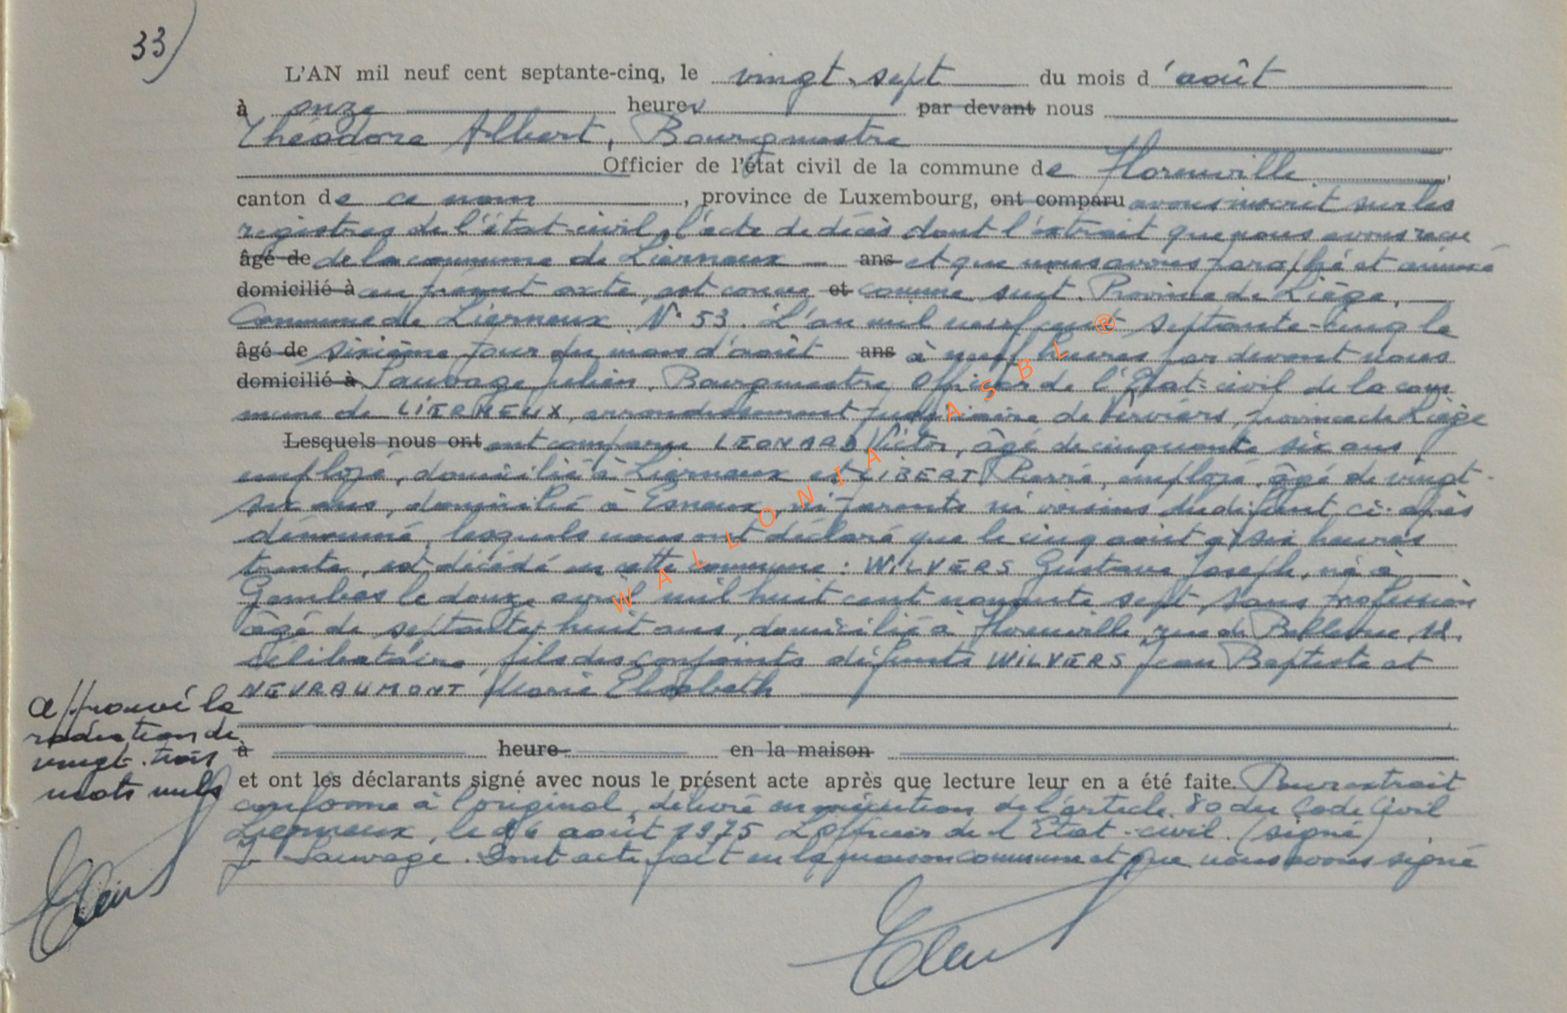 33)
L'AN mil neuf cent septante-cinq, le vingt-sept du mois d'août
à onze heures par devant nous
Théodore Albert, Bourgmestre
Officier de l'état civil de la commune de Florenville,
canton de ce nom, province de Luxembourg, ont comparu avons inscrit sur les
registres de l'état-civil, l'acte de décès dont l'extrait que nous avons reçu
âgé de de la commune de Lierneux ans et que nous avons paraphé et annexé
domicilié à au présent acte, est conçu et comme suit. Province de Liège,
Commune de Lierneux N° 53. L'an mil neuf cent septante-cinq le
âgé de sixième jour du mois d'août ans à neuf heures par devant nous
domicilié à Sauvage Julien, Bourgmestre Officier de l'Etat-civil de la com
mune de LIERNEUX, arrondissement judiciaire de Verviers, province de Liège
Lesquels nous ont ont comparu LEONARD Victor, âgé de cinquante six ans
employé, domicilié à Lierneux et LIBERT Pierre, employé, âgé de vingt-
six ans, domicilié à Esneux, ni parents ni voisins du défunt ci-après
dénommé, lesquels nous ont déclaré que le cinq août à six heures
trente, est décédé en cette commune : WILVERS Gustave Joseph, né à
le douze avril mil huit cent nonante sept, sans profession
âgé de septante huit ans, domicilié à Florenville, rue de Bellevue,
célibataire, fils des conjoints défunts WILVERS Jean Baptiste et
NEVRAUMONT Marie Elisabeth
à heure en la maison
et ont les déclarants signé avec nous le présent acte après que lecture leur en a été faite. Pour extrait
conforme à l'original, délivré en exécution de l'article 80 du Code Civil
Lierneux, le 26 août 1975 L'Officier de l'Etat-civil. (signé)
J. Sauvage. Dont acte fait en la maison commune et que nous avons signé
approuvé la
radiation de
vingt-trois
mots nuls
WALLONIA ASBL ®